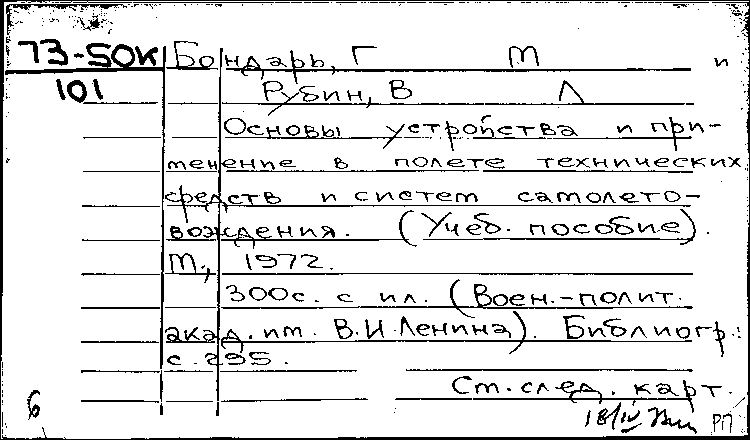 73-50К Бондарь, Г М и
101 Рубин, В Л
Основы устройства и при-
менение в полете технических
средств и систем самолето-
вождения. (Учеб. пособие).
М., 1972.
300с. с ил. (Воен.-полит.
акад. им. В.И.Ленина). Библиогр.:
с. 295.
Ст. след. карт.
6 18/IV РП